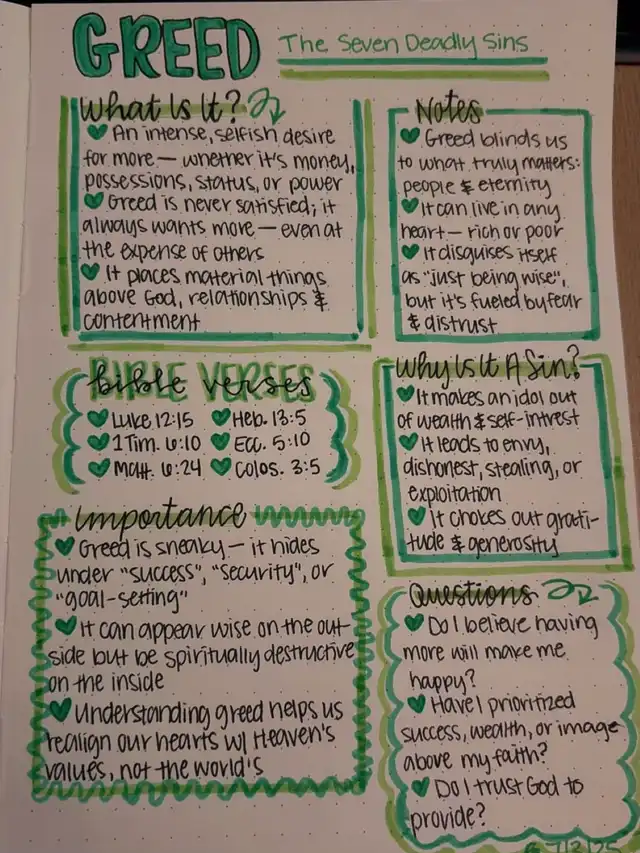 GREED The Seven Deadly Sins
What Is It?
An intense, selfish desire
for more — whether it's money,
possessions, status, or power
Greed is never satisfied; it
always wants more — even at
the expense of others
It places material things
above God, relationships &
contentment
Notes
Greed blinds us
to what truly matters:
people & eternity
It can live in any
heart — rich or poor
It disguises itself
as "just being wise",
but it's fueled by fear
& distrust
bible VERSES
Luke 12:15 Heb. 13:5
1 Tim. 6:10 Ecc. 5:10
Matt. 6:24 Colos. 3:5
Why Is It A Sin?
It makes an idol out
of wealth & self-intrest
It leads to envy,
dishonest, stealing, or
exploitation
It chokes out grati-
tude & generosity
Importance
Greed is sneaky — it hides
under "success", "security", or
"goal-setting"
It can appear wise on the out-
side but be spiritually destructive
on the inside
Understanding greed helps us
realign our hearts w/ Heaven's
values, not the world's
Questions
Do I believe having
more will make me
happy?
Have I prioritized
success, wealth, or image
above my faith?
Do I trust God to
provide?